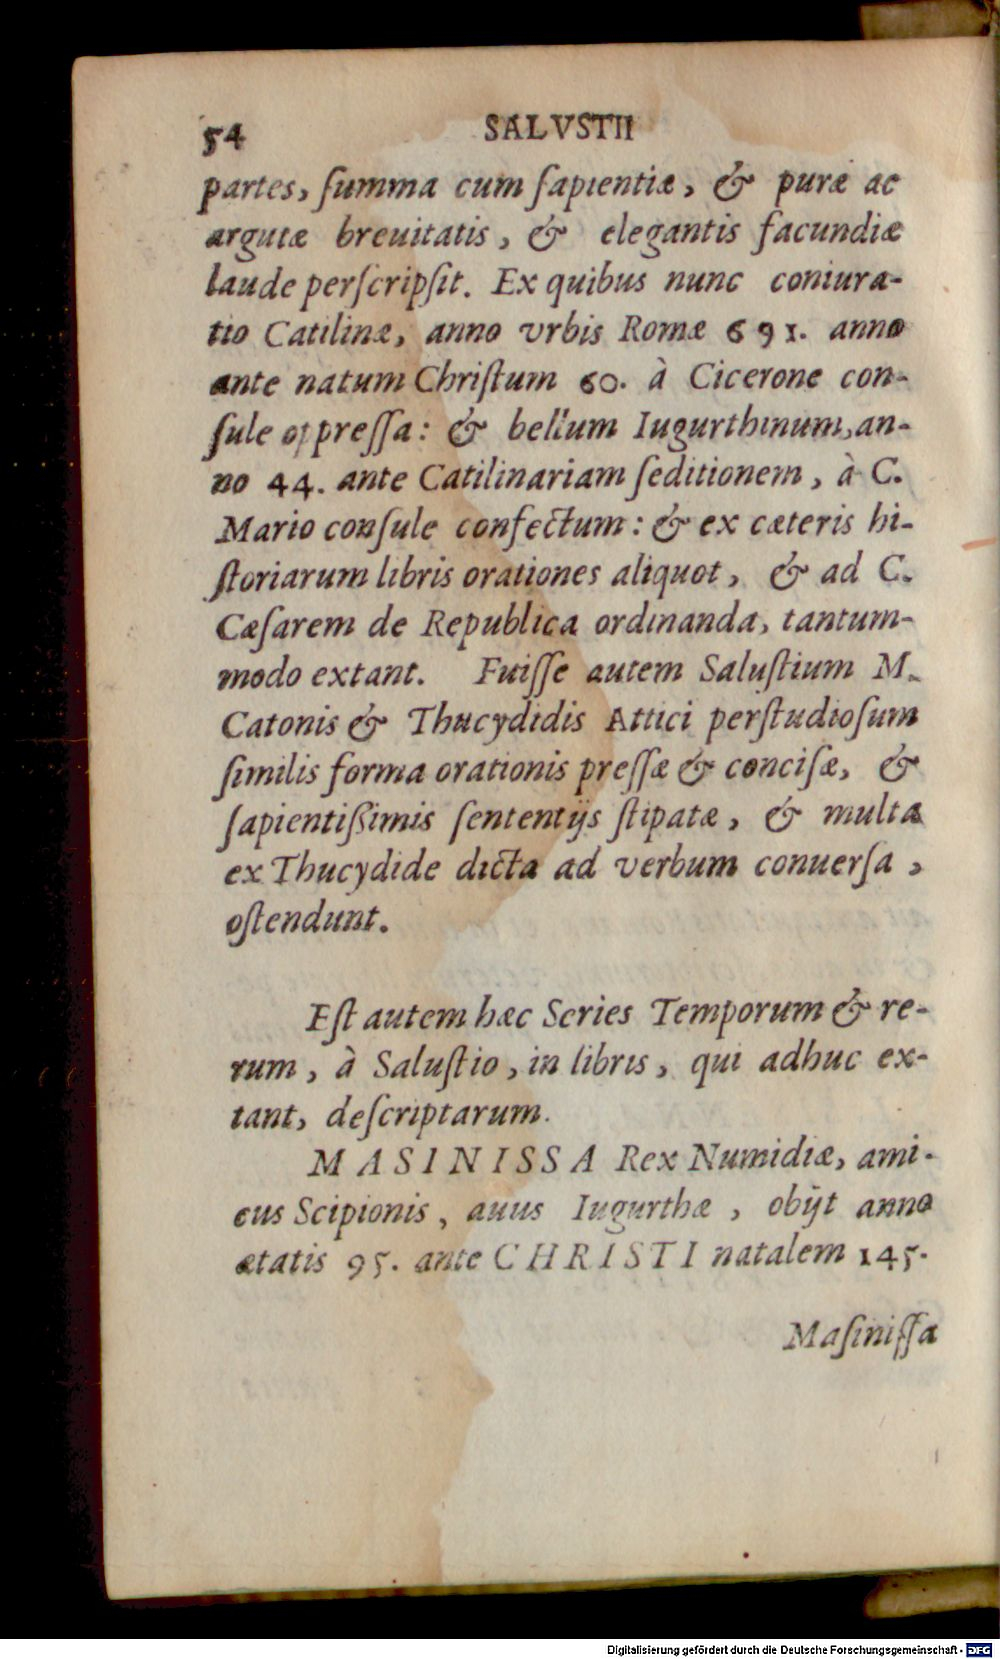 54 SALVSTII
partes, ſumma cum ſapientiæ, & puræ ac
argutæ breuitatis, & elegantis facundiæ
laude perſcripſit. Ex quibus nunc coniura-
tio Catilinæ, anno vrbis Romæ 691. anno
ante natum Chriſtum 60. à Cicerone con-
ſule oppreſſa: & bellum Iugurthinum, an-
no 44. ante Catilinariam ſeditionem, à C.
Mario conſule confectum: & ex cæteris hi-
ſtoriarum libris orationes aliquot, & ad C.
Cæſarem de Republica ordinanda, tantum-
modo extant. Fuiſſe autem Saluſtium M.
Catonis & Thucydidis Attici perſtudioſum
ſimilis forma orationis preſſæ & conciſæ, &
ſapientiſſimis ſententijs ſtipatæ, & multa
ex Thucydide dicta ad verbum conuerſa,
oſtendunt.
Eſt autem hæc Series Temporum & re-
rum, à Saluſtio, in libris, qui adhuc ex-
tant, deſcriptarum.
MASINISSA Rex Numidiæ, ami-
cus Scipionis, auus Iugurthæ, obijt anno
ætatis 95. ante CHRISTI natalem 145.
Maſiniſſa
Digitalisierung gefördert durch die Deutsche Forschungsgemeinschaft - DFG